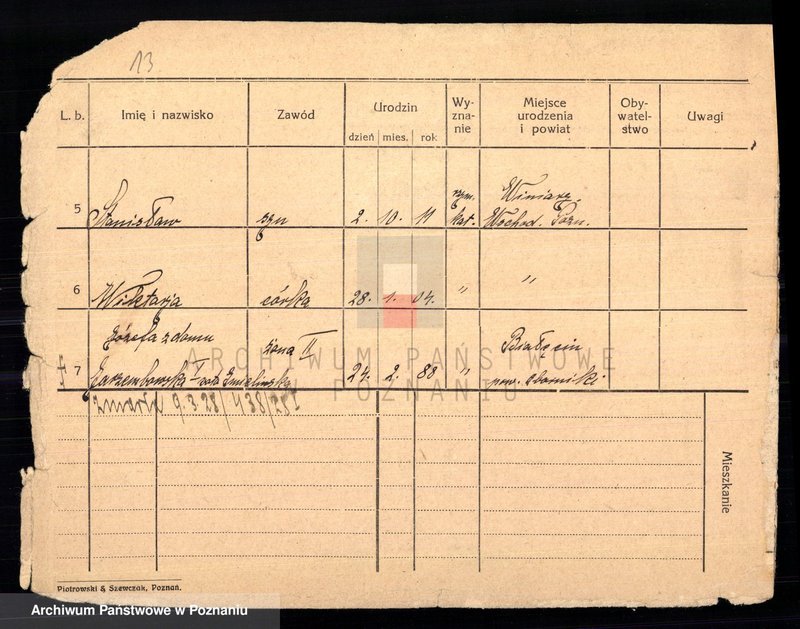 13
L. b. Imię i nazwisko Zawód Urodzin Wy-zna-nie Miejsce urodzenia i powiat Oby-watel-stwo Uwagi
dzień mies. rok
5 Stanisław syn 2. 10. 11 rzm. kat. Winiary.
Wschod. Pozn.
6 Wiktorja córka 28. 1. 04. " "
Józefa z domu żona II
7 24. 2. 88 " Białęcin
pow. Oborniki
zmarła 9.3.28/
Mieszkanie
Piotrowski & Szewczak, Poznań.
ARCHIWUM PAŃSTWOWE
W POZNANIU
Archiwum Państwowe w Poznaniu